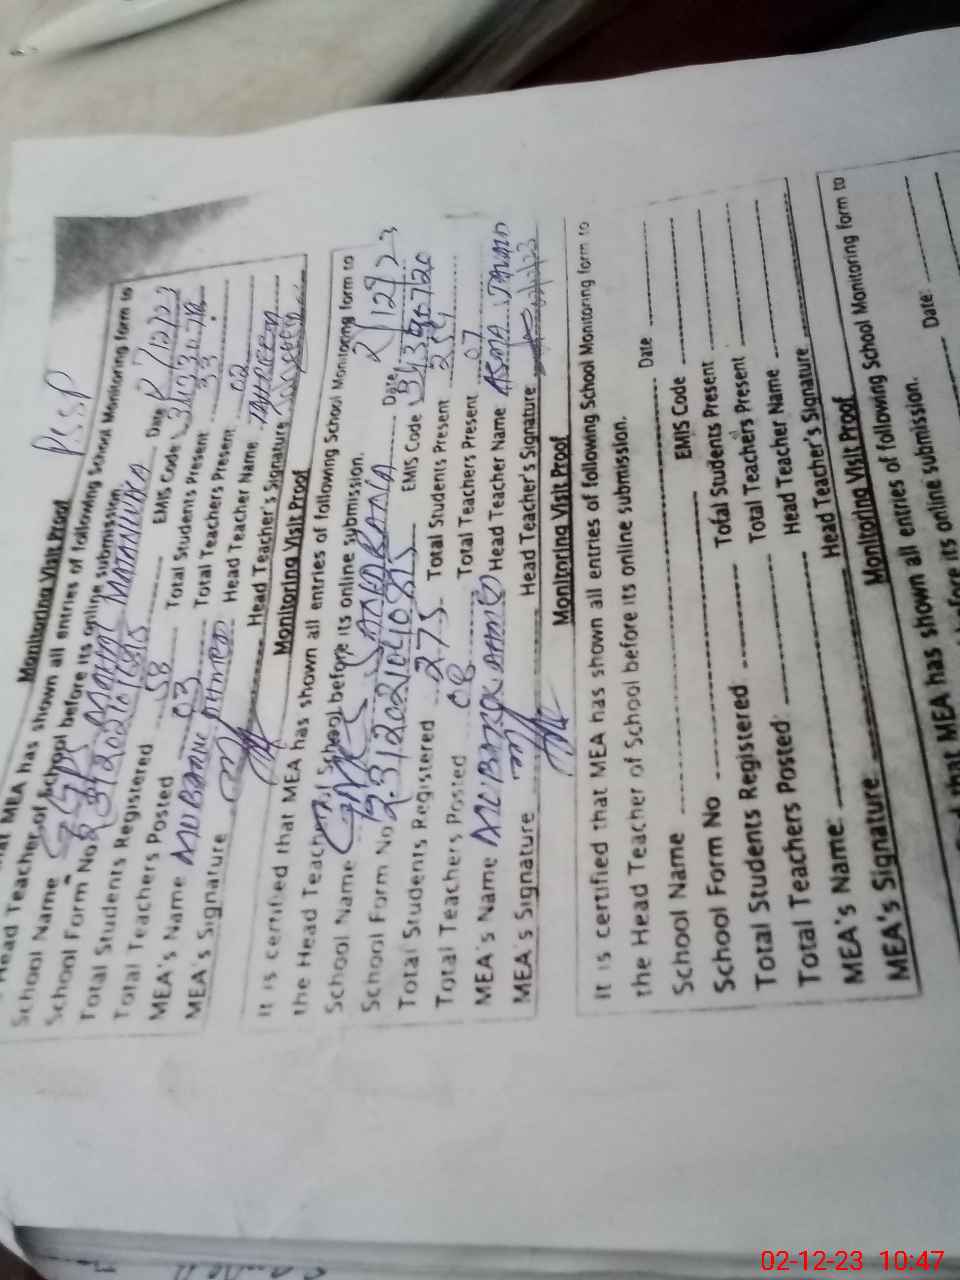 PSSP
Monitoring Visit Proof
that MEA has shown all entries of following School Monitoring form to
Head Teacher of School before its online submission.
School Name GGPS MAHNI Date 2/12/23
School Form No EMIS Code
Total Students Registered 58 Total Students Present 33
Total Teachers Posted 03 Total Teachers Present 02
MEA's Name MUBARIK AHMED Head Teacher Name TAHREEM
MEA's Signature Head Teacher's Signature
Monitoring Visit Proof
It is certified that MEA has shown all entries of following School Monitoring form to
the Head Teacher of School before its online submission.
School Name Date 2/12/23
School Form No EMIS Code
Total Students Registered 275 Total Students Present
Total Teachers Posted 08 Total Teachers Present 07
MEA's Name MUBARIK AHMED Head Teacher Name ASMA
MEA's Signature Head Teacher's Signature 02/12/23
Monitoring Visit Proof
It is certified that MEA has shown all entries of following School Monitoring form to
the Head Teacher of School before its online submission.
School Name Date
School Form No EMIS Code
Total Students Registered Total Students Present
Total Teachers Posted Total Teachers Present
MEA's Name: Head Teacher Name
MEA's Signature Head Teacher's Signature
Monitoring Visit Proof
that MEA has shown all entries of following School Monitoring form to
before its online submission.
Date:
02-12-23 10:47